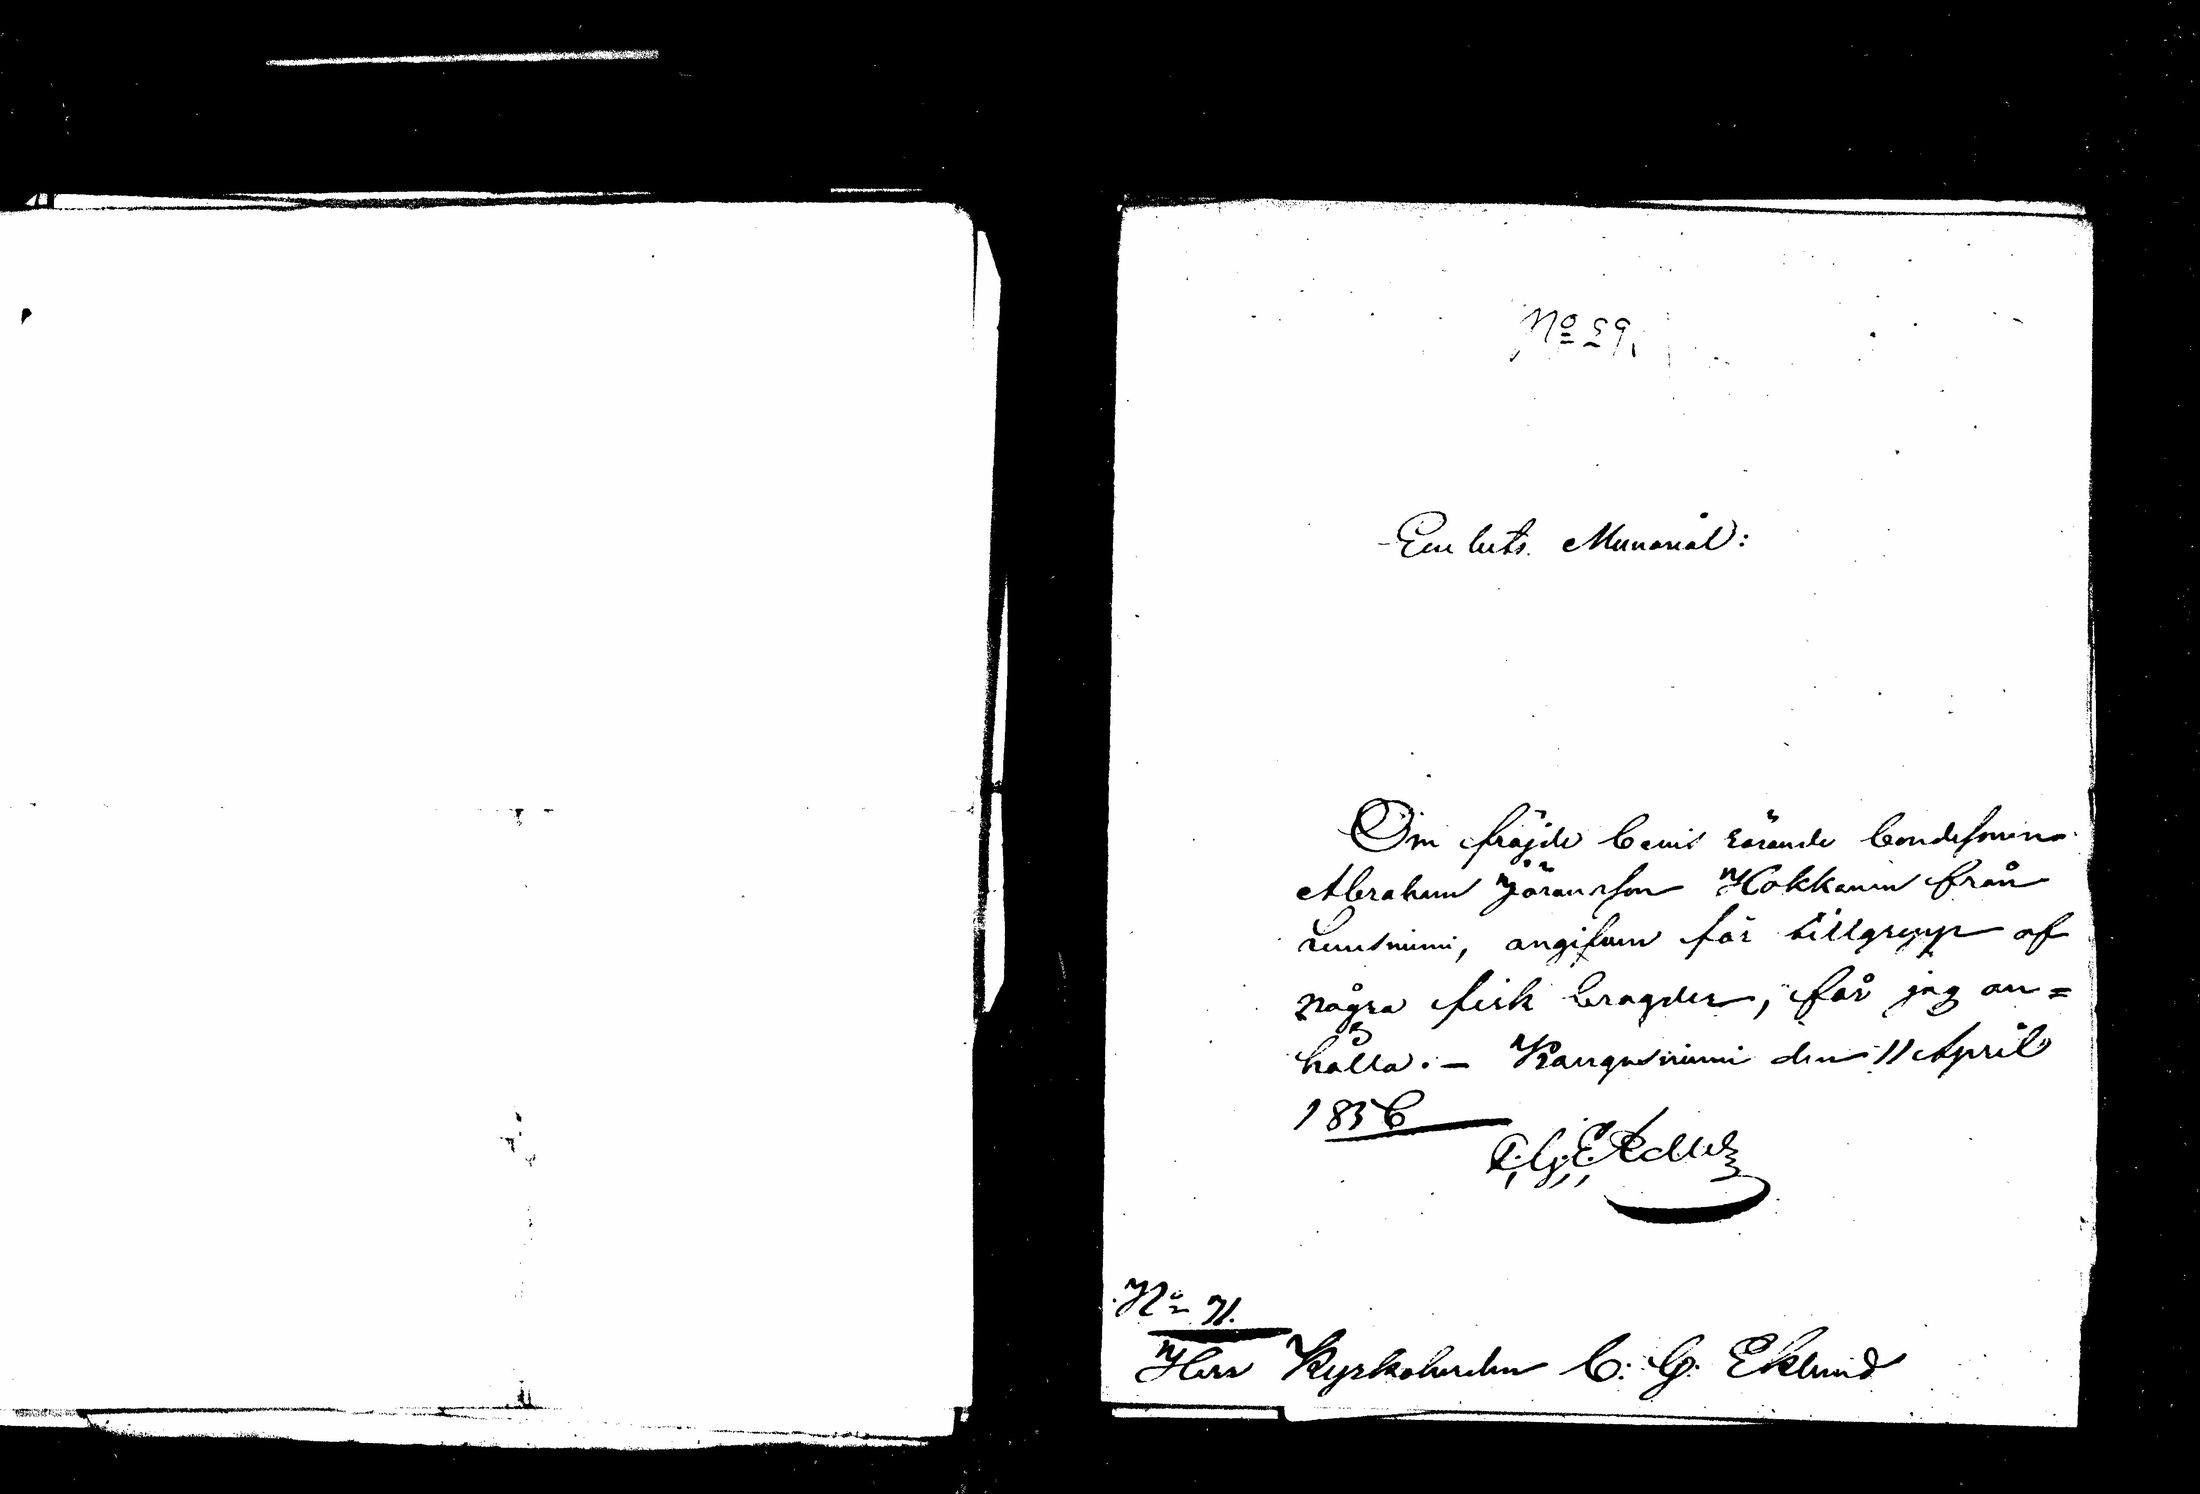 No 59.
Embets Memorial:
Om fräjde bevis rörande bondesonen
Abraham Jöransson Hokkanen från
angifven för tillgrepp af
några fisk bragder, får jag an=
hålla. — Kangasniemi den 11 April
1856
No 71.
Herr Kyrkoherden C. G. Eklund